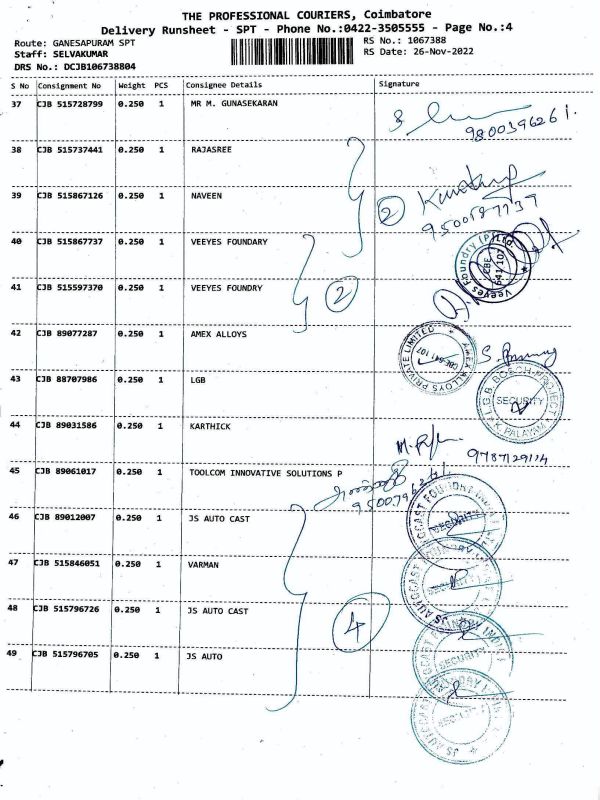 THE PROFESSIONAL COURIERS, Coimbatore
Delivery Runsheet - SPT - Phone No.:0422-3505555 - Page No.:4
Route: GANESAPURAM SPT
RS No.: 1067388
Staff: SELVAKUMAR
RS Date: 26-Nov-2022
DRS No.: DCJB106738804
S No Consignment No Weight PCS Consignee Details Signature
37 CJB 515728799 0.250 1 MR M. GUNASEKARAN
9800396261.
38 CJB 515737441 0.250 1 RAJASREE
39 CJB 515867126 0.250 1 NAVEEN
2
9500187737
40 CJB 515867737 0.250 1 VEEYES FOUNDARY
Veeyes Foundry (P) Ltd. CBE 641 107
41 CJB 515597370 0.250 1 VEEYES FOUNDRY
2
42 CJB 89077287 0.250 1 AMEX ALLOYS
AMEX ALLOYS PRIVATE LIMITED CBE-641 107
43 CJB 88707986 0.250 1 LGB
L.G.B. SECURITY K. PALAYAM
44 CJB 89031586 0.250 1 KARTHICK
45 CJB 89061017 0.250 1 TOOLCOM INNOVATIVE SOLUTIONS P
46 CJB 89012007 0.250 1 JS AUTO CAST
SECURITY
47 CJB 515846051 0.250 1 VARMAN
JS AUTOCAST FOUNDRY INDIA
48 CJB 515796726 0.250 1 JS AUTO CAST
4
49 CJB 515796705 0.250 1 JS AUTO
SECURITY
JS AUTOCAST FOUNDRY INDIA
SECURITY